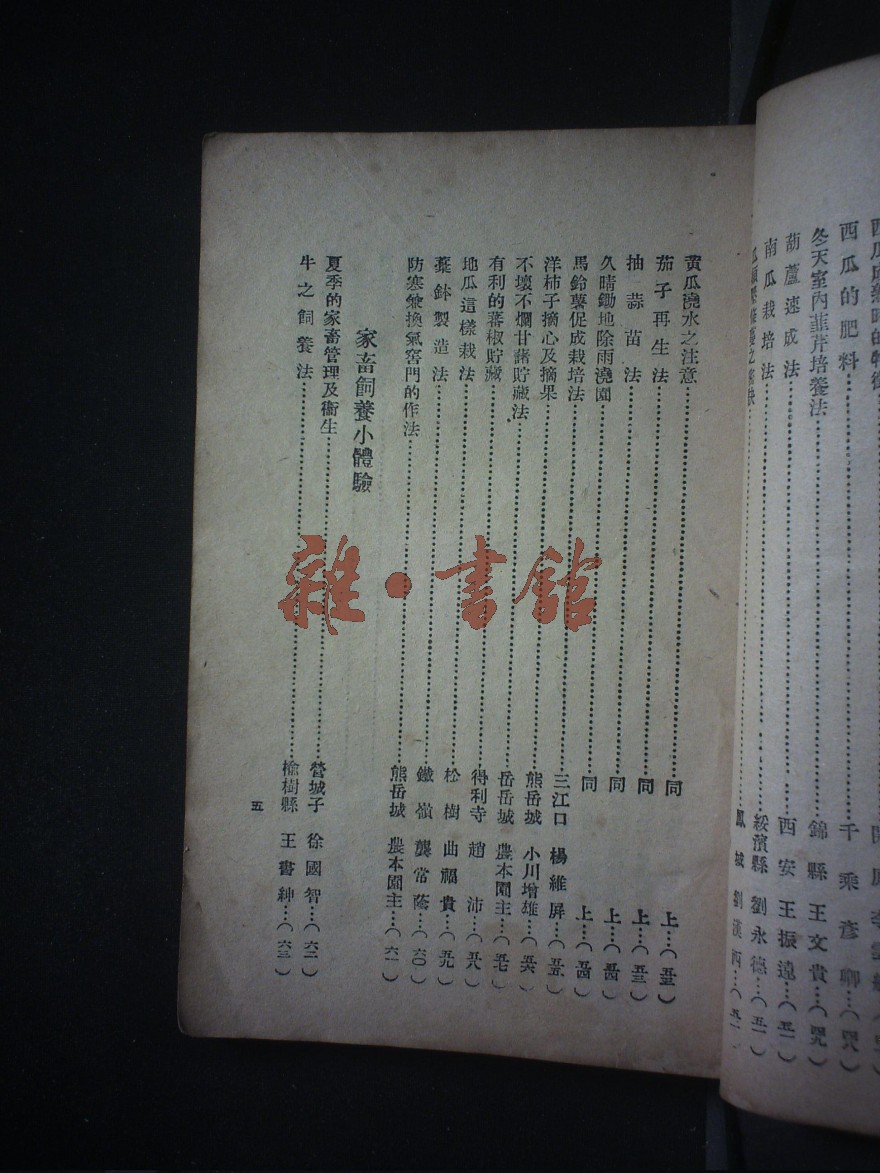 西瓜的肥料……千乘彥卿…（四八）
冬天室內韮芹培養法……錦縣 王文貴…（四九）
葫蘆速成法……西安 王振遠…（五一）
南瓜栽培法……綏濱縣 劉永德…（五一）
鳳城 劉漢西…（五一
黃瓜澆水之注意……同 上…（五三）
茄子再生法……同 上…（五三）
抽蒜苗法……同 上…（五四）
久晴鋤地除雨澆園……同 上…（五四）
馬鈴薯促成栽培法……三江口 楊維屏…（五五）
洋柿子摘心及摘果……熊岳城 小川增雄…（五六）
不壞不爛甘諸貯藏法……岳岳城 農本園主…（五七）
有利的蕃椒貯藏……得利寺 趙沛…（五八）
地瓜這樣栽法……松樹 曲福貴…（五九）
葉鉢製造法……鐵嶺 龔常蔭…（六〇）
防寒兼換氣窖門的作法……熊岳城 農本園主…（六一）
家畜飼養小體驗
夏季的家畜管理及衞生……營城子 徐國智…（六二）
牛之飼養法……楡樹縣 王書紳…（六三）
五
雜·書館